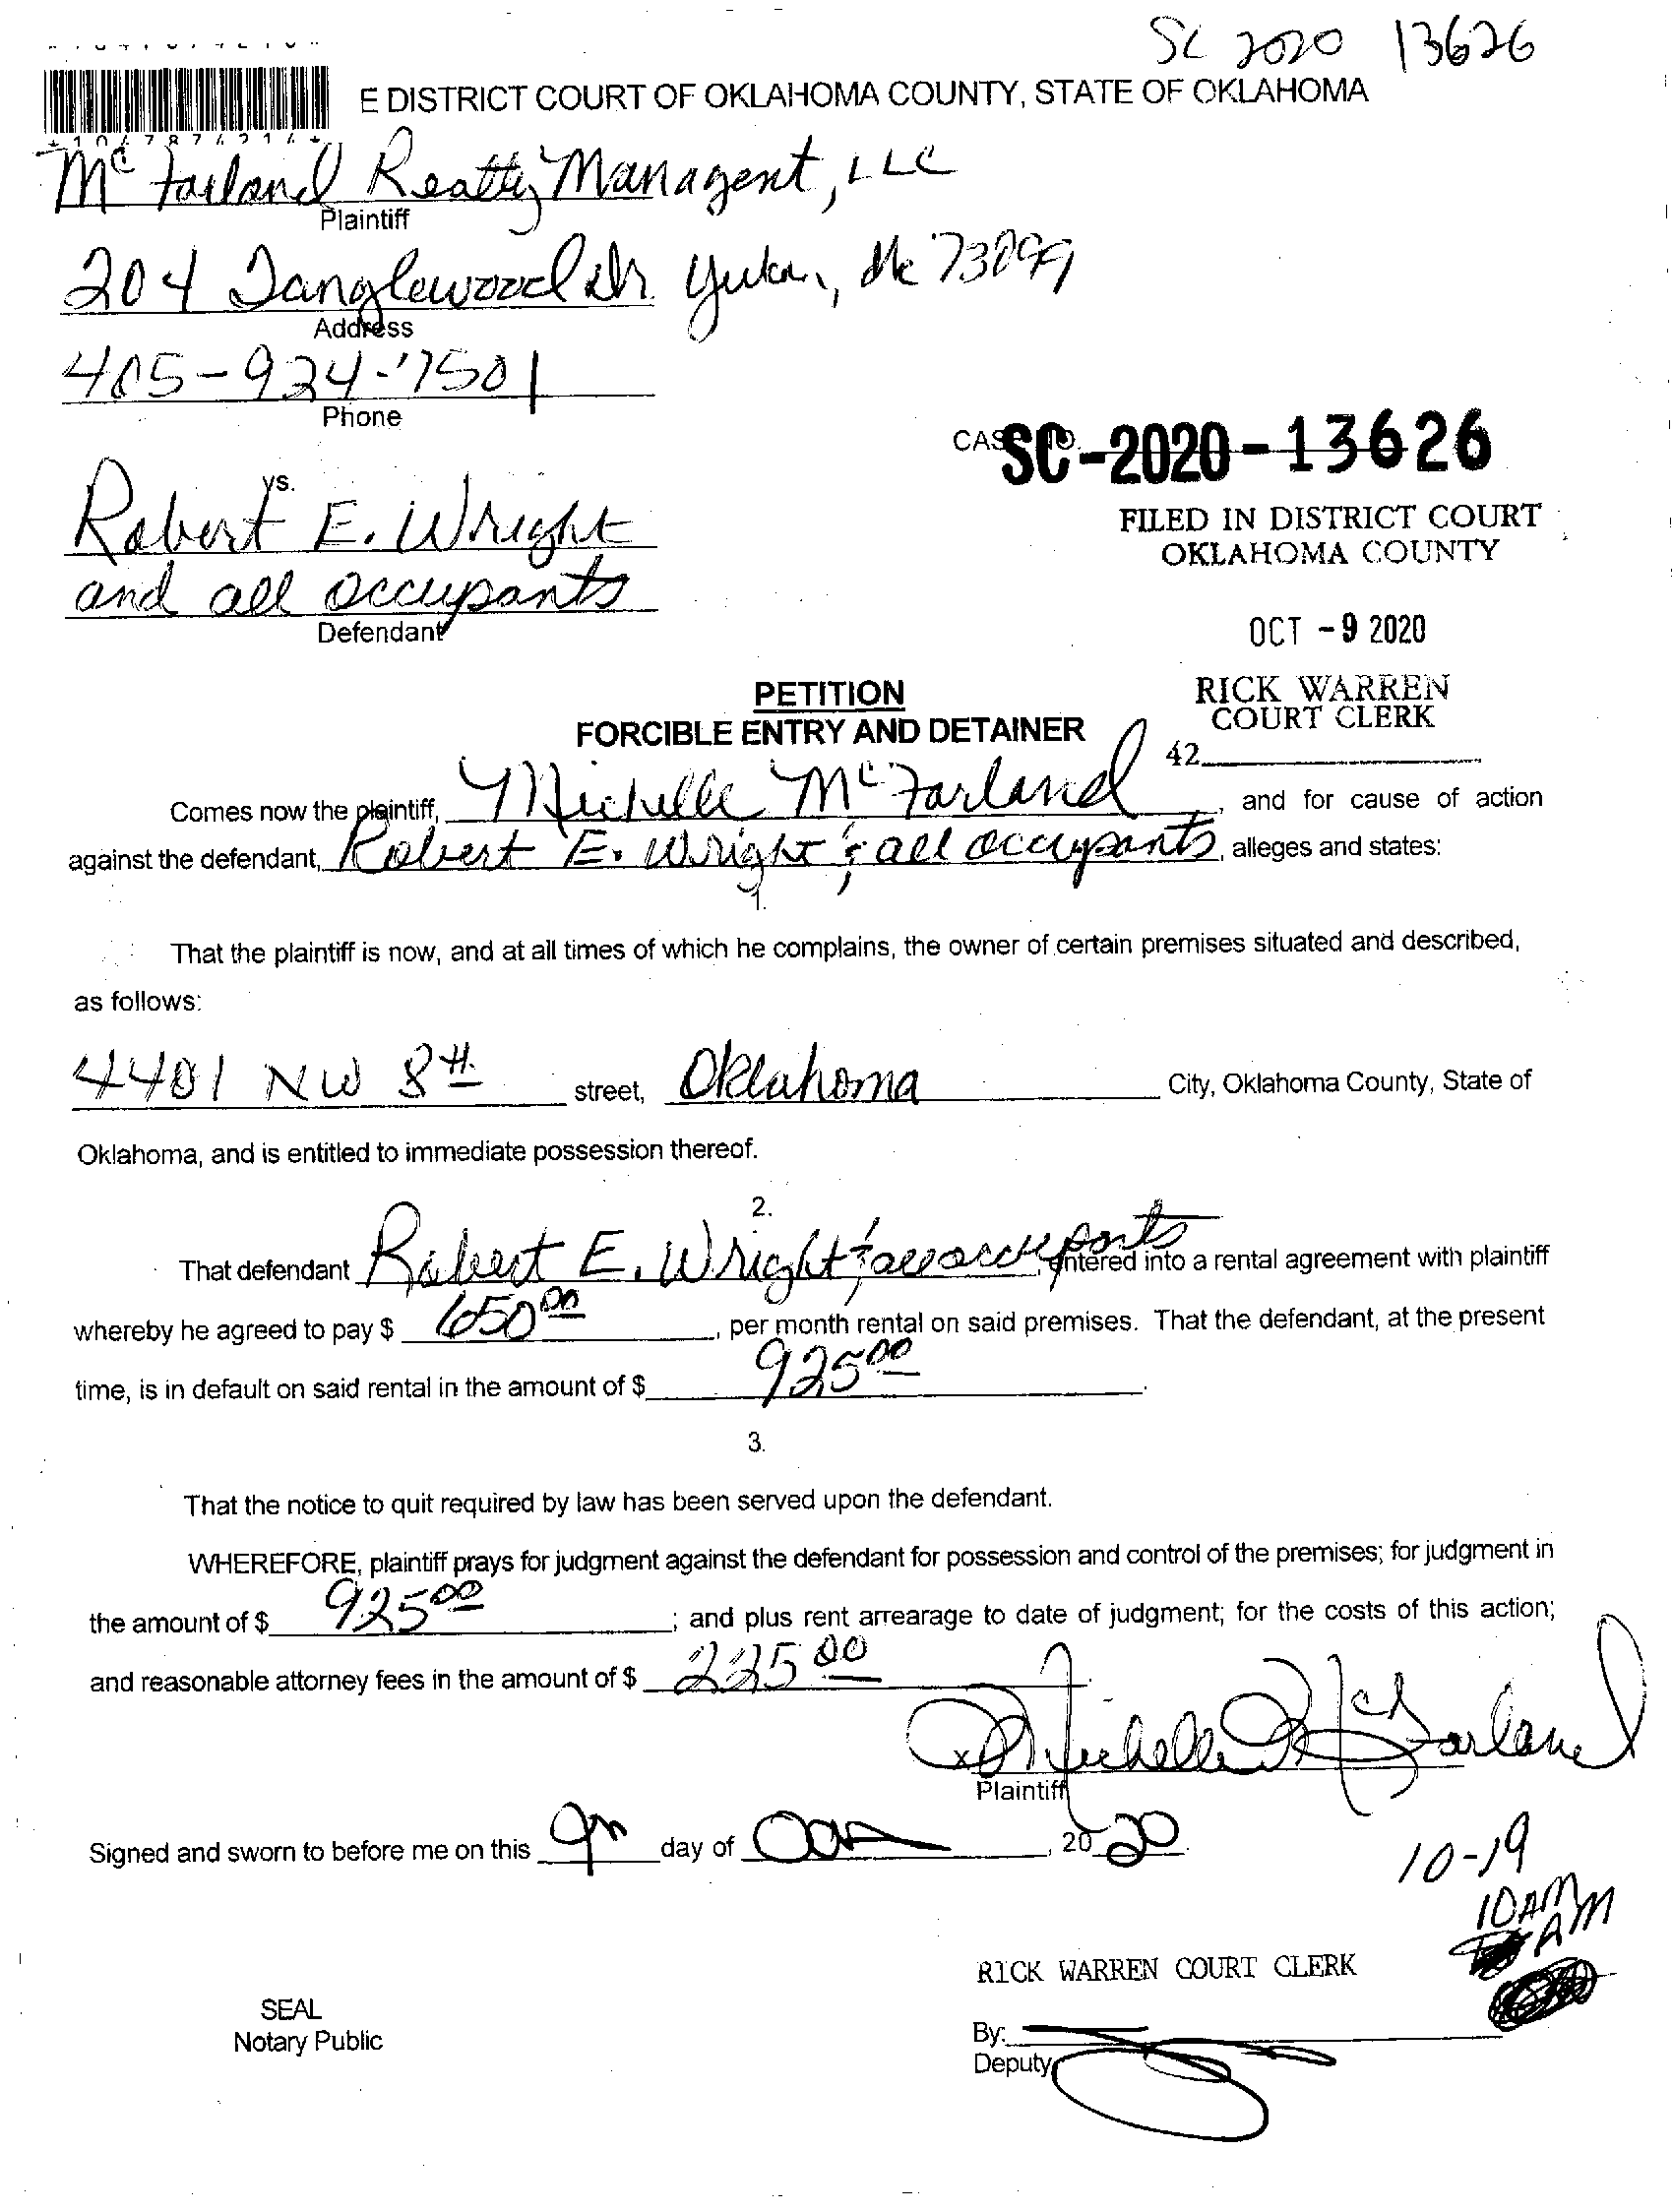 SC 2020 13626
E DISTRICT COURT OF OKLAHOMA COUNTY, STATE OF OKLAHOMA
*1047874214*
McFarland Realty Managent, LLC
Plaintiff
204 Tanglewood Dr. Yukon, Ok 73099
Address
405-924-7501
Phone
CASE NO. SC-2020-13626
vs.
Robert E. Wright
and all occupants
Defendant
FILED IN DISTRICT COURT
OKLAHOMA COUNTY
OCT -9 2020
RICK WARREN
COURT CLERK
42
PETITION
FORCIBLE ENTRY AND DETAINER
Comes now the plaintiff, Michelle McFarland, and for cause of action
against the defendant, Robert E. Wright & all occupants, alleges and states:
1.
That the plaintiff is now, and at all times of which he complains, the owner of certain premises situated and described,
as follows:
4401 NW 8th street, Oklahoma City, Oklahoma County, State of
Oklahoma, and is entitled to immediate possession thereof.
2.
That defendant Robert E. Wright & all occupants, entered into a rental agreement with plaintiff
whereby he agreed to pay $ 650.00, per month rental on said premises. That the defendant, at the present
time, is in default on said rental in the amount of $ 925.00.
3.
That the notice to quit required by law has been served upon the defendant.
WHEREFORE, plaintiff prays for judgment against the defendant for possession and control of the premises; for judgment in
the amount of $ 925.00; and plus rent arrearage to date of judgment; for the costs of this action;
and reasonable attorney fees in the amount of $ 225.00.
x Michelle McFarland
Plaintiff
Signed and sworn to before me on this 9th day of Oct, 2020.
10-19
10AM
AM
RICK WARREN COURT CLERK
SEAL
Notary Public
By:
Deputy